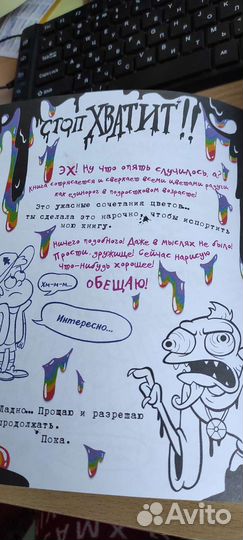 СТОП ХВАТИТ!!
ЭХ! Ну что опять случилось, а?
Книга сотрясается и сверкает всеми цветами радуги
как единорог в подростковом возрасте!
Это ужасные сочетания цветов...
ты сделала это нарочно, чтобы испортить
мою книгу.
Ничего подобного! Даже в мыслях не было!
Прости, дружище! Сейчас нарисую
что-нибудь хорошее!
ОБЕЩАЮ!
Хм-м-м...
Интересно...
Ладно... Прощаю и разрешаю
продолжать.
Пока.
Avito